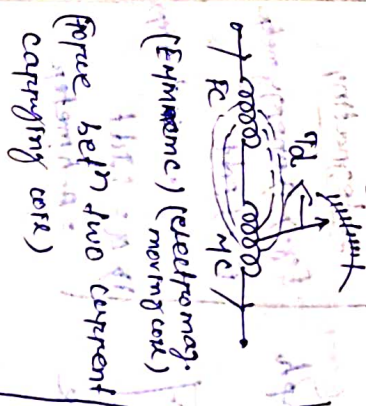 FC
MC
Td
(EMMC) (electromag.
moving coil)
(Force betn two current
carrying coil)